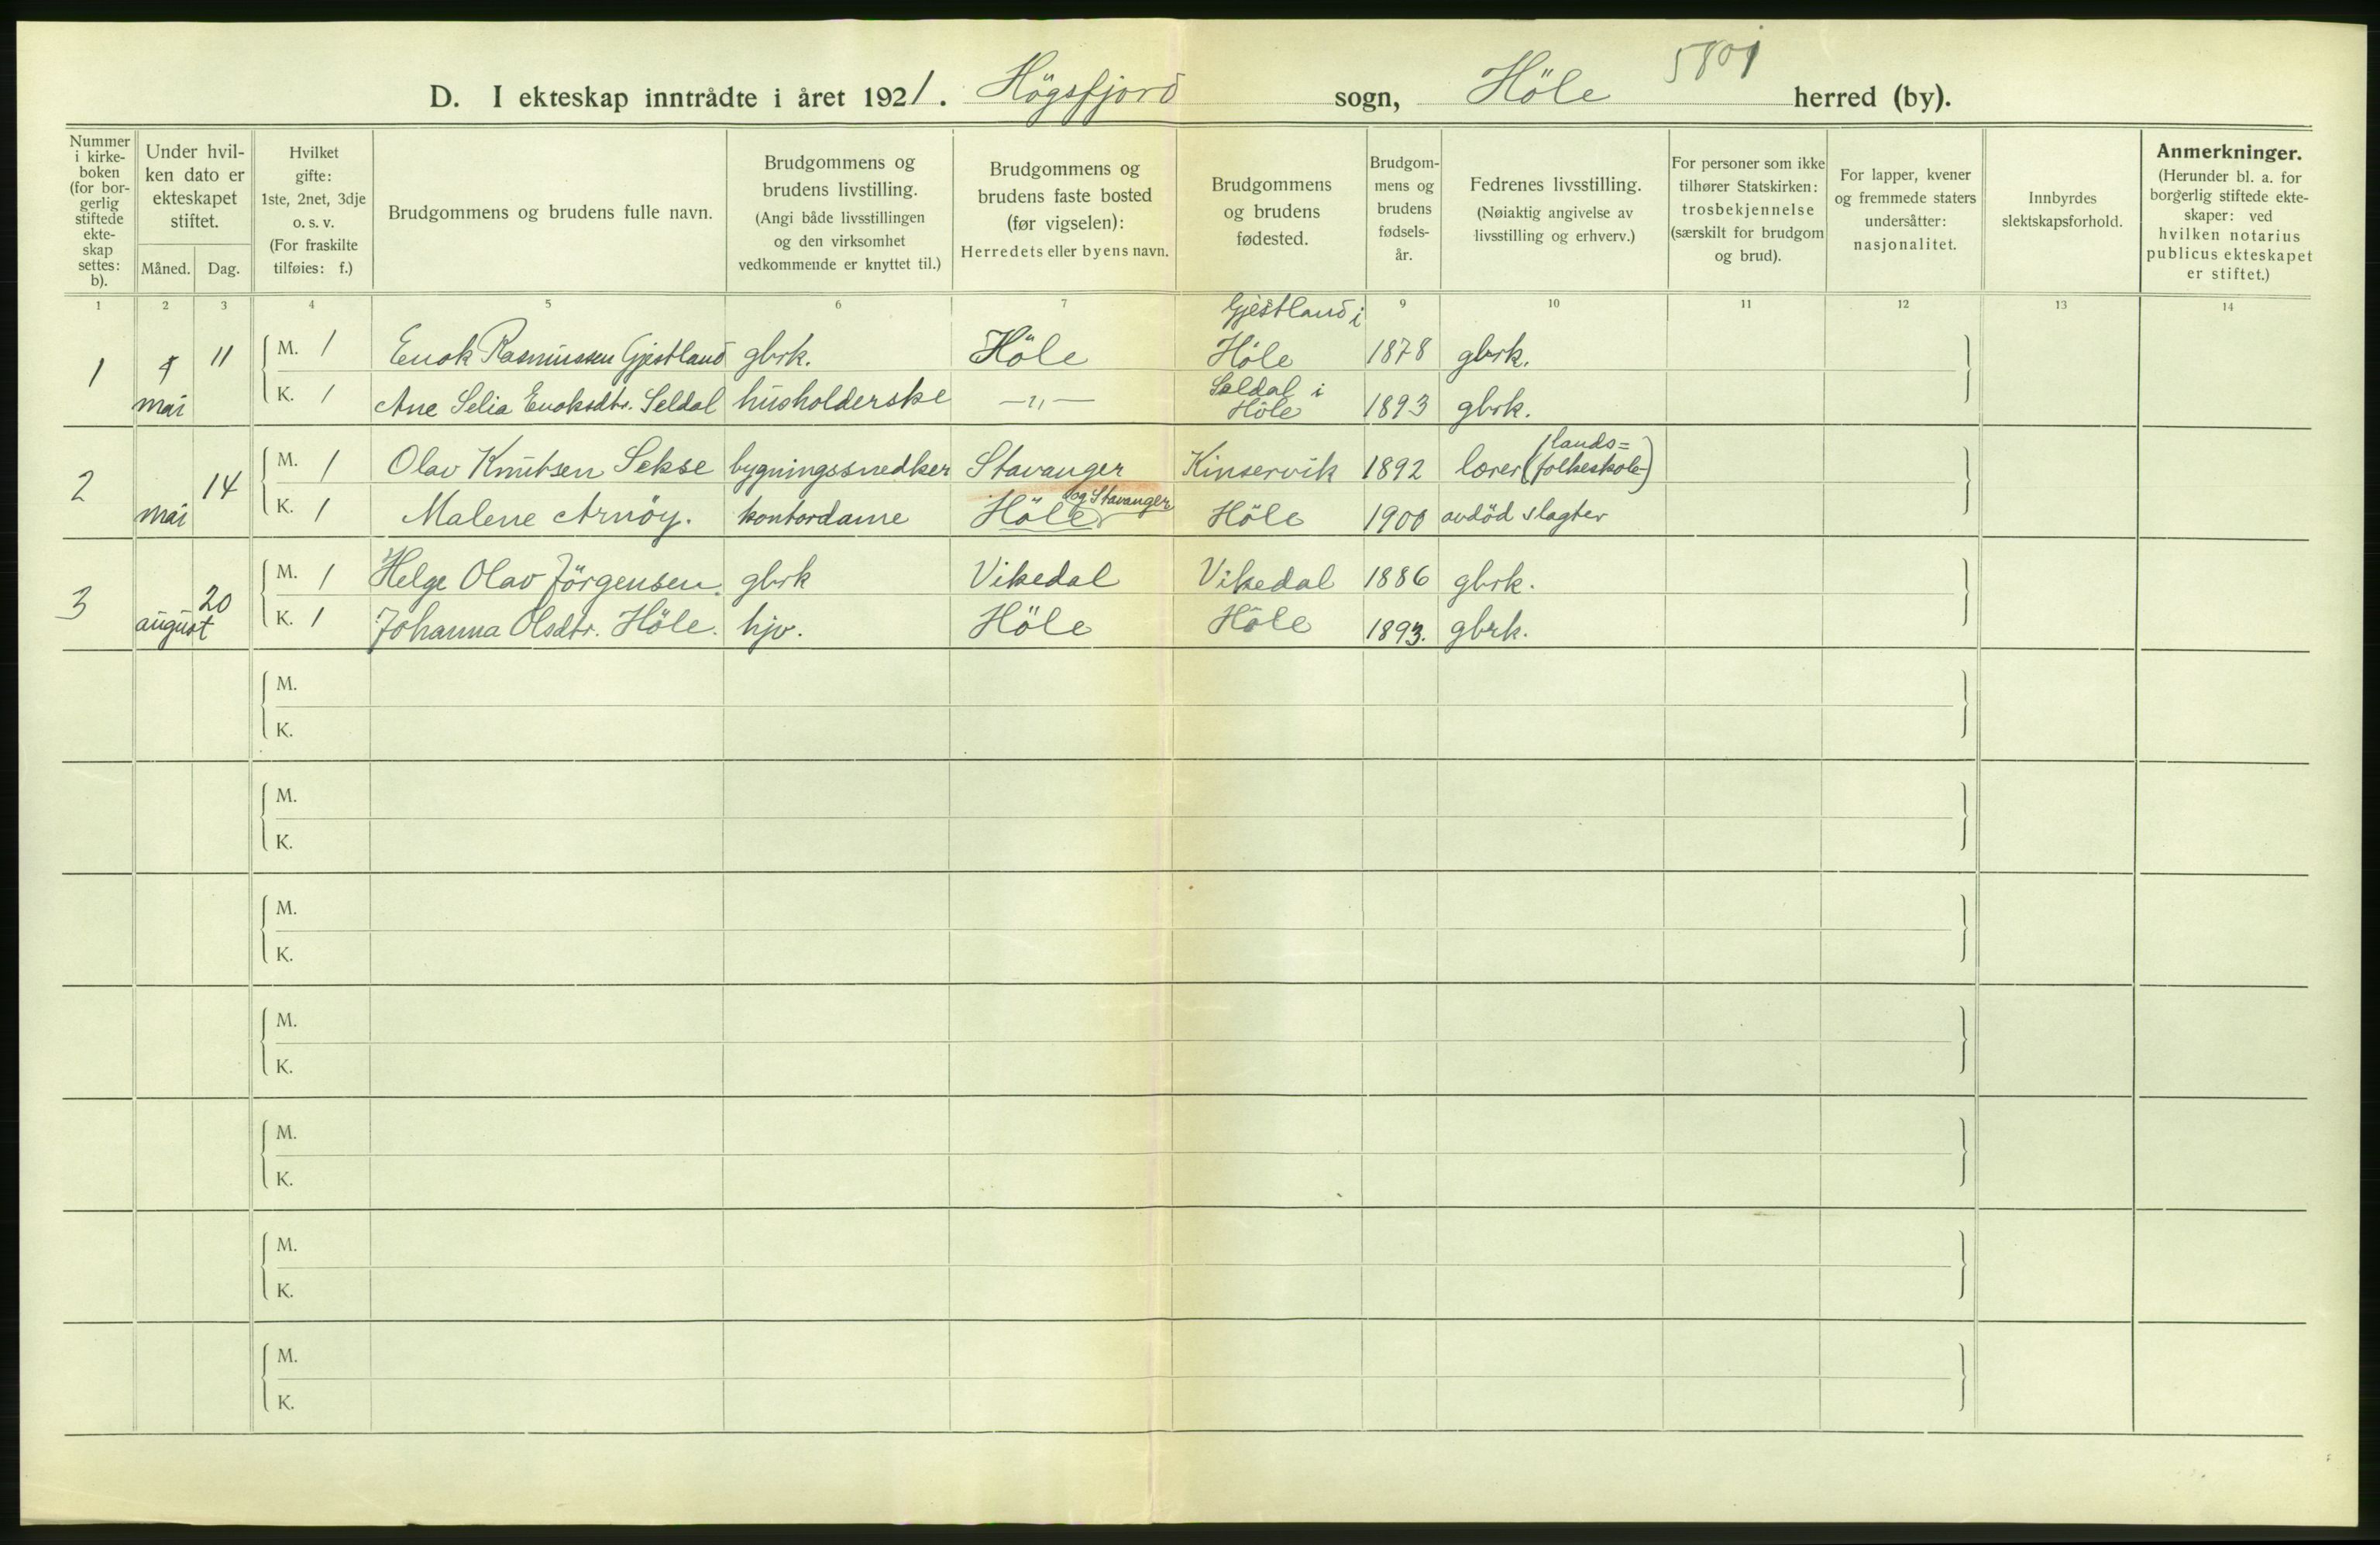 5801
D. I ekteskap inntrådte i året 1921. Högsfjord sogn, Höle herred (by).
Nummer i kirke-boken (for bor-gerlig stiftede ekte-skap settes: b).
Under hvil-ken dato er ekteskapet stiftet.
Måned. Dag.
Hvilket gifte: 1ste, 2net, 3dje o. s. v. (For fraskilte tilføies: f.)
Brudgommens og brudens fulle navn.
Brudgommens og brudens livstilling. (Angi både livsstillingen og den virksomhet vedkommende er knyttet til.)
Brudgommens og brudens faste bosted (før vigselen): Herredets eller byens navn.
Brudgommens og brudens fødested.
Brudgom-mens og brudens fødsels-år.
Fedrenes livsstilling. (Nøiaktig angivelse av livsstilling og erhverv.)
For personer som ikke tilhører Statskirken: trosbekjennelse (særskilt for brudgom og brud).
For lapper, kvener og fremmede staters undersåtter: nasjonalitet.
Innbyrdes slektskapsforhold.
Anmerkninger. (Herunder bl. a. for borgerlig stiftede ekte-skaper: ved hvilken notarius publicus ekteskapet er stiftet.)
1 2 3 4 5 6 7 8 9 10 11 12 13 14
1 mai 11 M. 1 Enok Rasmussen Gjestland gbrk. Höle Gjestland i Höle 1878 gbrk.
K. 1 Ane Selia Enoksdtr. Seldal husholderske —"— Seldal i Höle 1893 gbrk.
2 mai 14 M. 1 Olav Knutsen Sekse bygningssnedker Stavanger Kinservik 1892 lærer (lands=folkeskole)
K. 1 Malene Arnöy. kontordame Höle og Stavanger Höle 1900 avdöd slagter
3 august 20 M. 1 Helge Olav Jörgensen. gbrk Vikedal Vikedal 1886 gbrk.
K. 1 Johanna Olsdtr. Höle. hjv. Höle Höle 1893. gbrk.
M.
K.
M.
K.
M.
K.
M.
K.
M.
K.
M.
K.
M.
K.